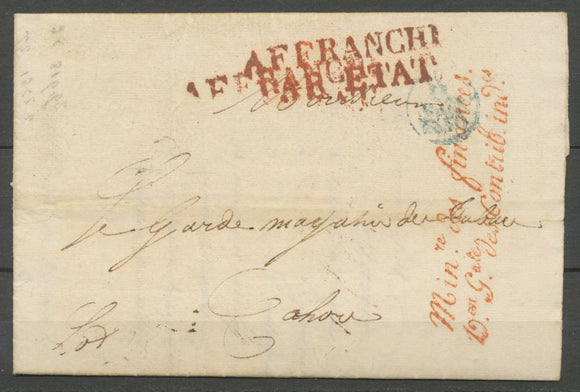 AFFRANCHI
PAR ETAT
Monsieur
Le Garde magasin des Tabacs
Cahors
Lot
Min.re des finances.
D.on G.ale des Contrib. ind.es